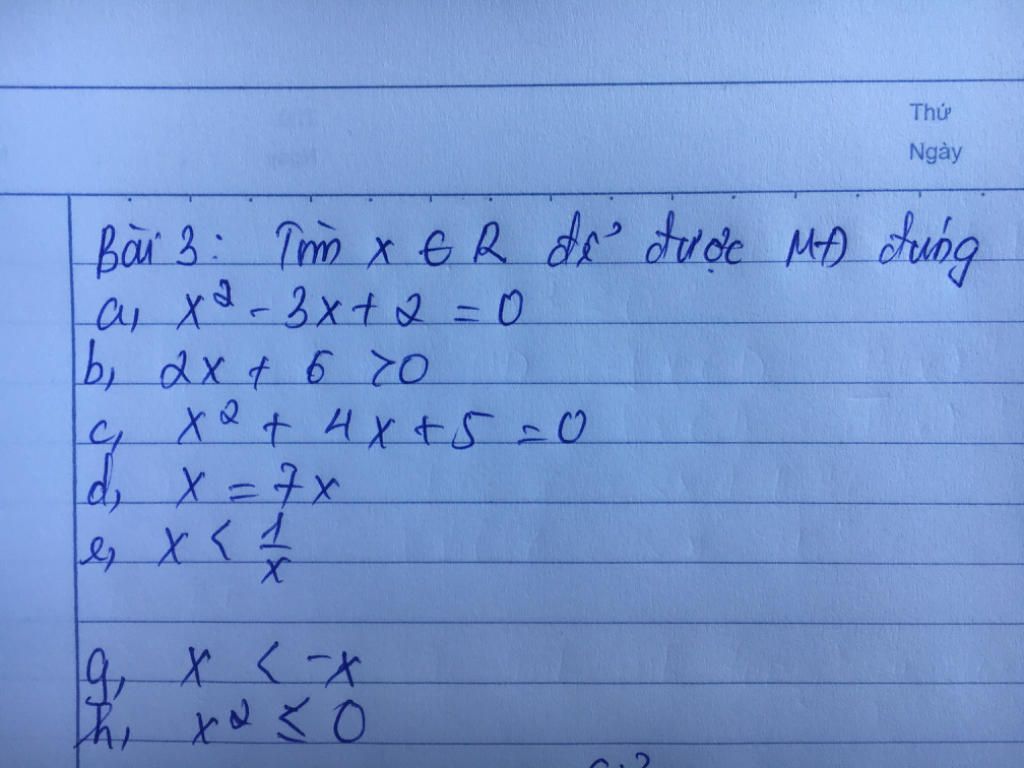 Thứ
Ngày
Bài 3: Tìm x ∈ R để được MĐ đúng
a, x² - 3x + 2 = 0
b, 2x + 6 > 0
c, x² + 4x + 5 = 0
d, x = 7x
e, x < 1/x
g, x < -x
h, x² ≤ 0